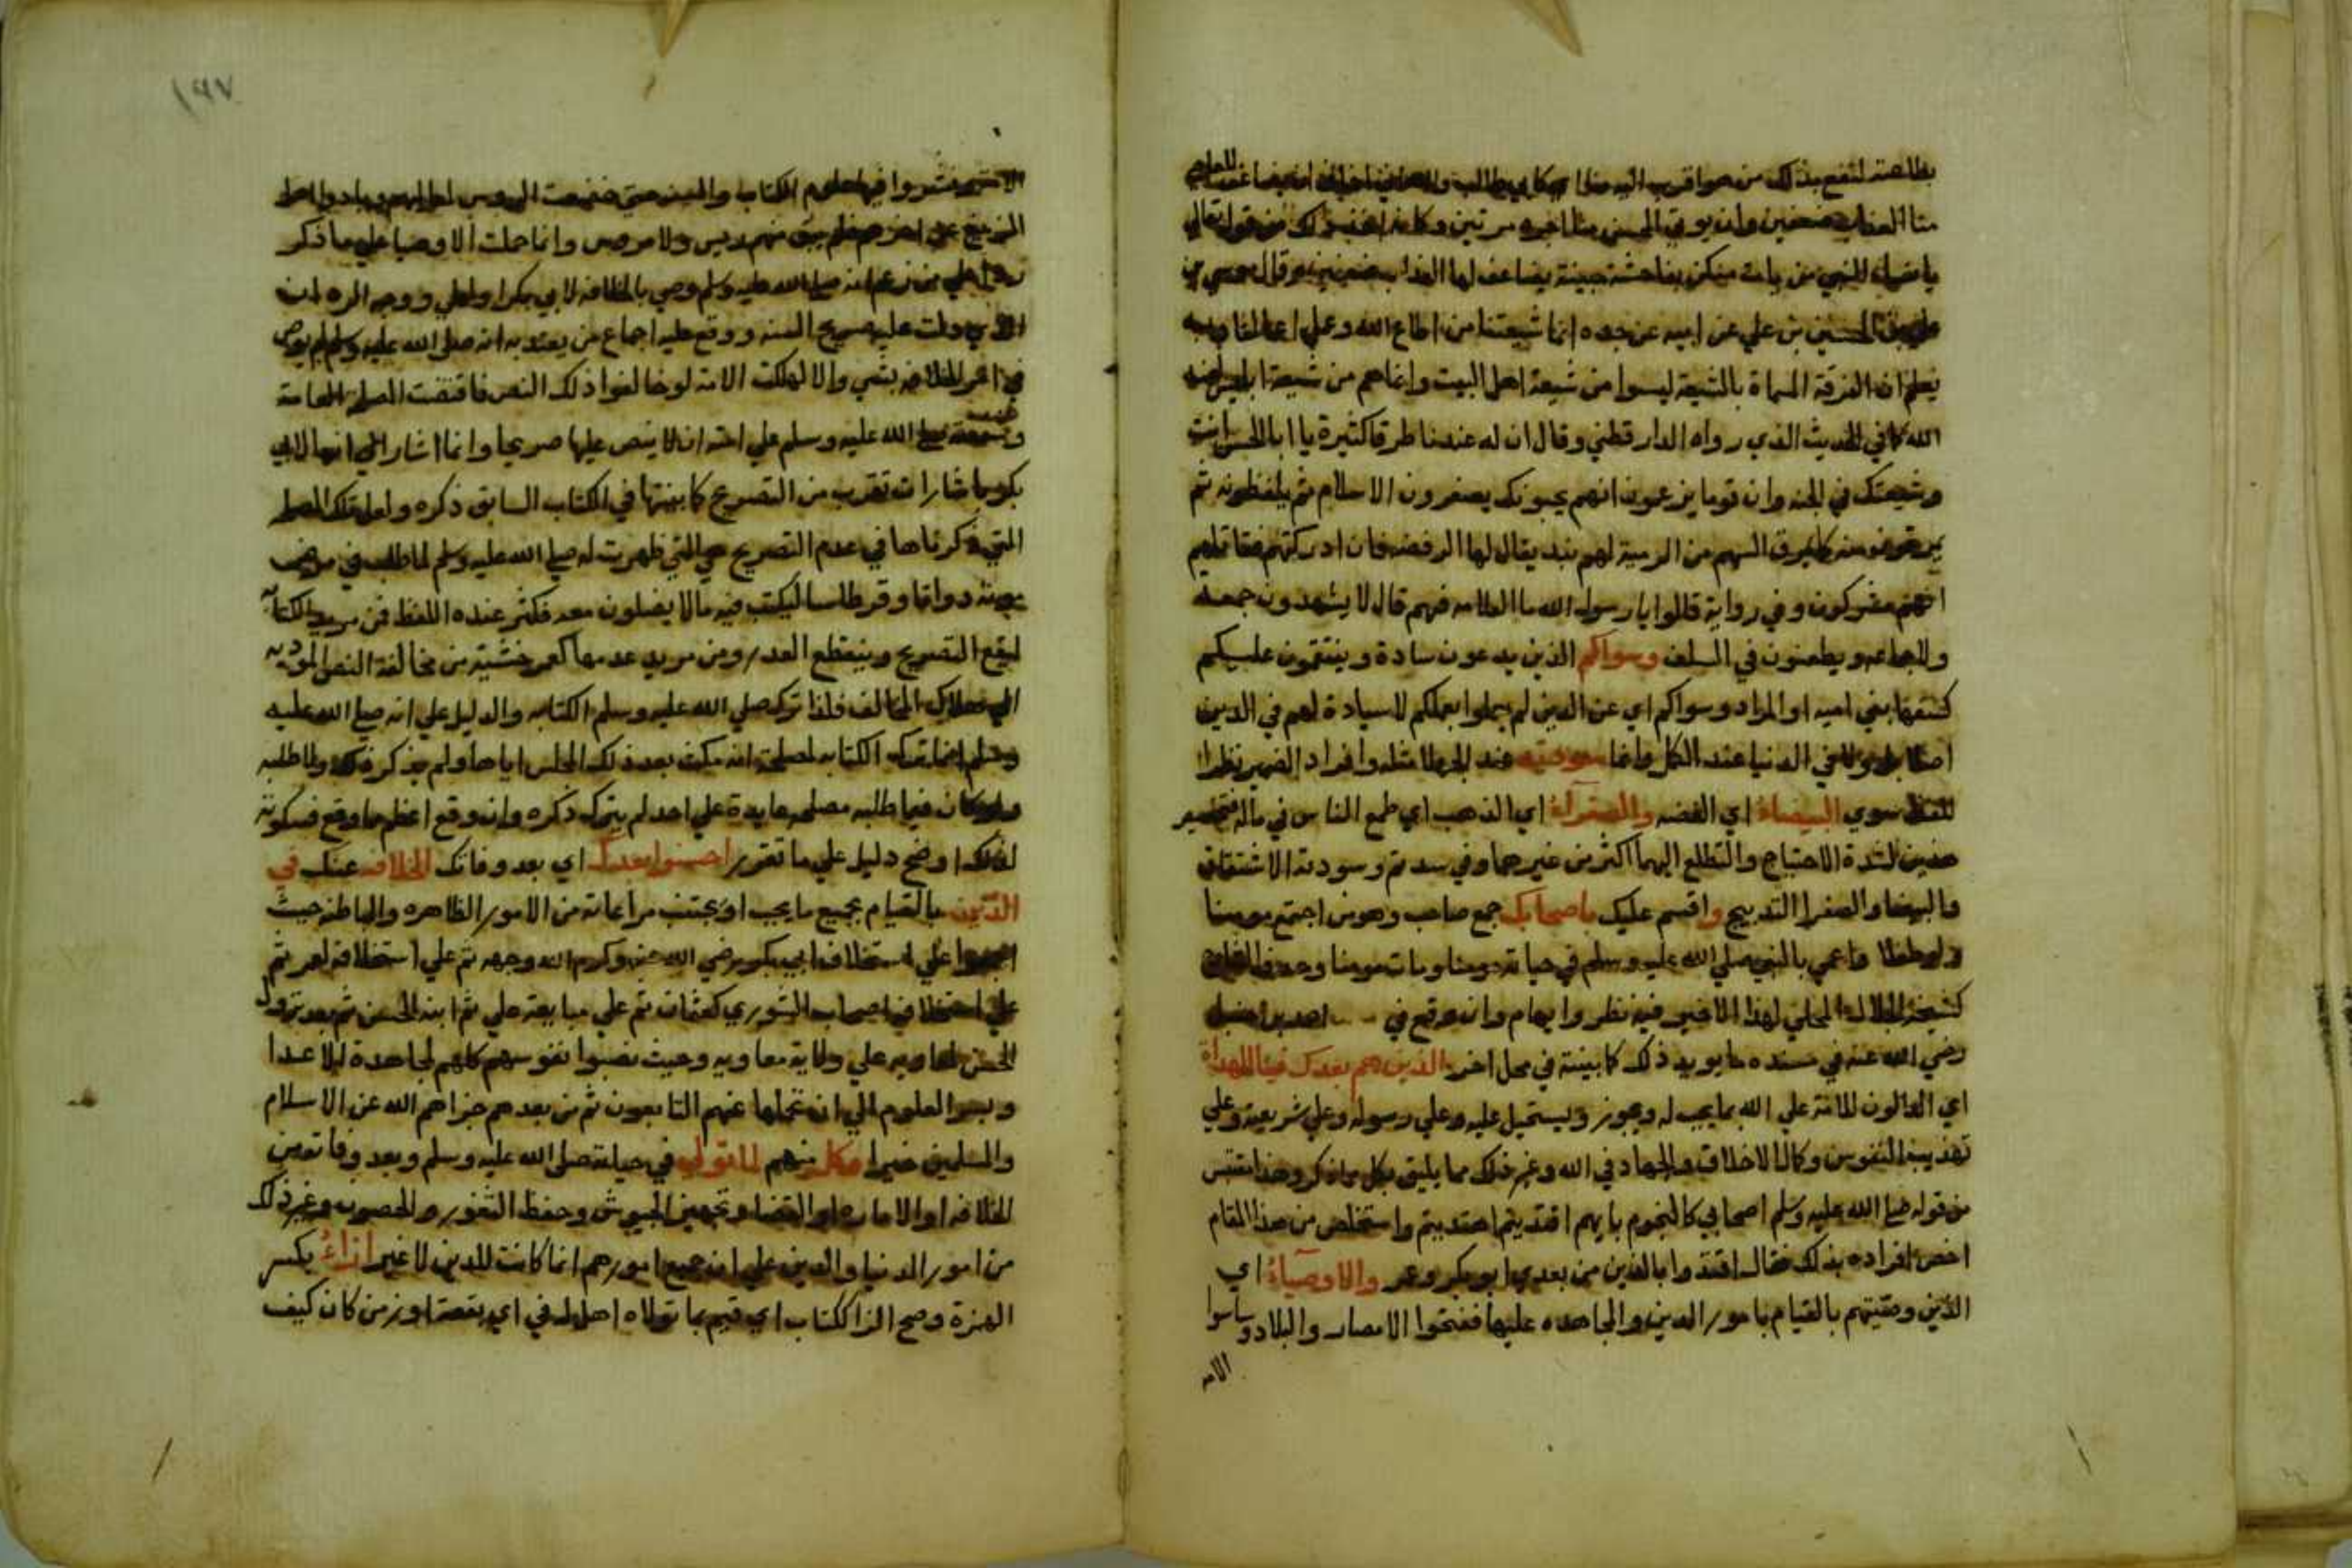 بطاعته لنفع بذلك من هو اقرب اليه مثل ابي طالب
منا العذاب ضعفين وان يوتي المحسن منا اجره مرتين وكانه اخذ ذلك من قوله تعالى
يا نساء النبي من يات منكن بفاحشة مبينة يضاعف لها العذاب ضعفين وقال موسي بن
علي بن الحسين بن علي عن ابيه عن جده انما شيعتنا من اطاع الله وعمل اعمالنا وبه
يعلم ان الفرقة المسماة بالشيعة ليسوا من شيعة اهل البيت وانما هم من شيعة ابليس لعنه
الله كما في الحديث الذي رواه الدارقطني وقال ان له عندنا طرقا كثيرة يا ابا الحسن انت
وشيعتك في الجنه وان قوما يزعمون انهم يحبونك يصغرون الاسلام ثم يلفظونه ثم
يمرقون منه كما يمرق السهم من الرمية لهم نبذ يقال لها الرفضه فان ادركتهم فقاتلهم
انهم مشركون وفي رواية قالوا يا رسول الله ما العلامه فيهم قال لا يشهدون جمعة
ولا جماعه ويطعنون في السلف وسواكم الذين يدعون سادة وينتقمون عليكم
كسفهاء بني اميه او المراد وسواكم اي عن الذين لم يعملوا بعملكم لا سيادة لهم في الدين
ولا في الدنيا عند الكل وانما سودته عند الجهلا مثله وافراد الضمير نظرا
للفظ سوي البيضاء اي الفضه والصفراء اي الذهب اي طمع الناس في ماله فتخصيص
هذين لشدة الاحتياج والتطلع اليهما اكثر من غيرهما وفي سدتم وسودته الاشتقاق
والبيضا والصفرا التدبيج واقسم عليك باصحابك جمع صاحب وهو من اجتمع مومنا
ولو لحظة واعمي بالنبي صلي الله عليه وسلم في حياته مومنا ومات مومنا
كشيخنا الجلال المحلي لهذا الاخير فيه نظر وايهام وان وقع في احمد بن حنبل
رضي الله عنه في مسنده ما يويد ذلك كما بينته في محل اخر الذين هم بعدك فينا الهداة
اي الدالون للامة علي الله بما يجب له ويجوز ويستحيل عليه وعلي رسوله وعلي شريعته وعلي
تهذيب النفوس وكمال الاخلاق والجهاد في الله وغير ذلك مما يليق بكل ما ذكر وهذا مقتبس
من قوله صلي الله عليه وسلم اصحابي كالنجوم بايهم اقتديتم اهتديتم واستخلص من هذا المقام
اخص افراده بذلك فقال اقتدوا بالذين من بعدي ابو بكر وعمر والاوصياء اي
الذين وصيتهم بالقيام بامور الدين والمجاهده عليها ففتحوا الامصار والبلاد وساسوا
الامه
١٩٧
فنشروا فيها علوم الكتاب والسنه حتي خضعت الروس لعلمهم وبادوا اهل
الزيغ عن اخرهم فلم يبق منهم رييس ولا مروس وانما حملت الاوصيا علي ما ذكر
ردا علي من زعم انه صلي الله عليه وسلم وصي بالخلافه لابي بكر او لعلي ووجه الرد ان
الذي دلت عليه صريح السنه ووقع عليه اجماع من يعتد به انه صلي الله عليه وسلم لم يوص
في امر الخلافه بشي والا لهلكت الامة لو خالفوا ذلك النص فاقتضت المصلحه العامة
وشفقته صلي الله عليه وسلم علي امته ان لا ينص عليها صريحا وانما اشار الي انها لابي
بكر باشارات تقرب من التصريح كما بينتها في الكتاب السابق ذكره ولعل تلك المصلحه
التي ذكرناها في عدم التصريح هي التي ظهرت له صلي الله عليه وسلم لما طلب في مرض
موته دواتا وقرطاسا ليكتب فيه ما لا يضلون معه فكثر عنده اللغط فمن مريد الكتابه
ليقع التصريح وينقطع العذر ومن مريد عدمها كعمر خشية من مخالفة النص المودية
الي هلاك المخالف فلذا ترك صلي الله عليه وسلم الكتابه والدليل علي انه صلي الله عليه
وسلم انما ترك الكتابه لمصلحة انه مكث بعد ذلك المجلس اياما ولم يذكر ذلك ولا طلبه
ولو كان فيما طلبه مصلحه عايدة علي احد لم يترك ذكره وان وقع اعظم مما وقع فسكوته
لذلك اوضح دليل علي ما تقرر احسنوا بعدك اي بعد وفاتك الخلافه عنك في
الدين بالقيام بجميع ما يجب او يجتنب مراعاته من الامور الظاهره والباطنه حيث
اجمعوا علي استخلاف ابي بكر رضي الله عنه وكرم الله وجهه ثم علي استخلافه لعمر ثم
علي استخلاف اصحاب الشوري كعثمان ثم علي مبايعة علي ثم ابنه الحسن ثم بعد نزول
الحسن لمعاويه علي ولاية معاويه وحيث نصبوا نفوسهم كلهم لمجاهدة الاعدا
وبينوا العلوم الي ان تحملها عنهم التابعون ثم من بعدهم جزاهم الله عن الاسلام
والمسلمين خيرا فكل منهم لما تولي في حياته صلي الله عليه وسلم وبعد وفاته من
الخلافه او الاماره او القضا وتجهيز الجيوش وحفظ الثغور والحصون وغير ذلك
من امور الدنيا والدين علي ان جميع امورهم انما كانت للدين لا غير ازاء بكسر
الهمزة وفتح الزا ككتاب اي قيم بما تولاه اهل له في اي بقعة او زمن كان كيف